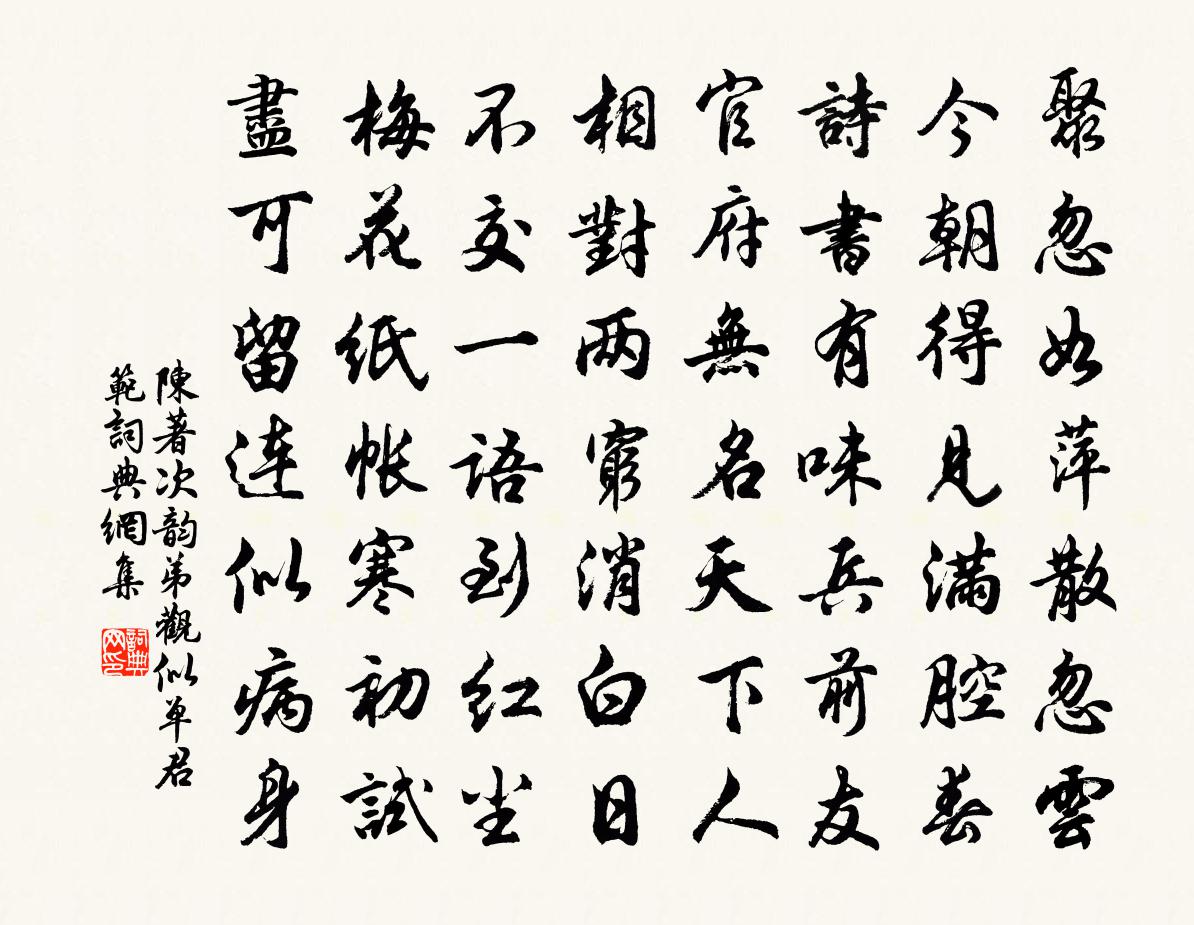 聚忽如萍散忽雲
今朝得見滿腔春
詩書有味兵前友
官府無名天下人
相對兩窮消白日
不交一語到紅尘
梅花紙帐寒初試
盡可留连似病身
陳著次韵弟觀似单君
範詞典網集
詞典网印